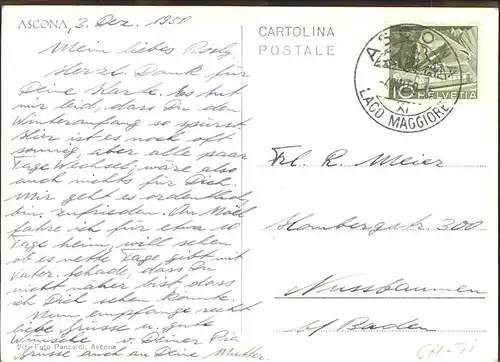 ASCONA, 3. Dez. 1950
Mein liebes Rosly
Herzl. Dank für
Deine Karte. Es tut
mir leid, dass Du den
Winteranfang so spürst.
Hier ist es noch oft
sonnig, aber alle paar
Tage Wechsel, wäre also
auch nichts für Dich.
Mir geht es ordentlich,
bin zufrieden. An
fahre ich für etwa 10
Tage heim, will sehen
ob es nette Tage gibt mit
Vater. Schade, dass Du
nicht näher bist dass
ich Dich sehen könnte.
Nun, empfange recht
liebe Grüsse u. gute
Wünsche v. Deiner Pia
20 - Foto Pancaldi, Ascona
Grüsse auch an Deine Mutter.
CARTOLINA
POSTALE
ASCONA
XI
LAGO MAGGIORE
10 HELVETIA
Frl. R. Meier
Hombergstr. 300
Nussbaumen
b/ Baden
CH-TI